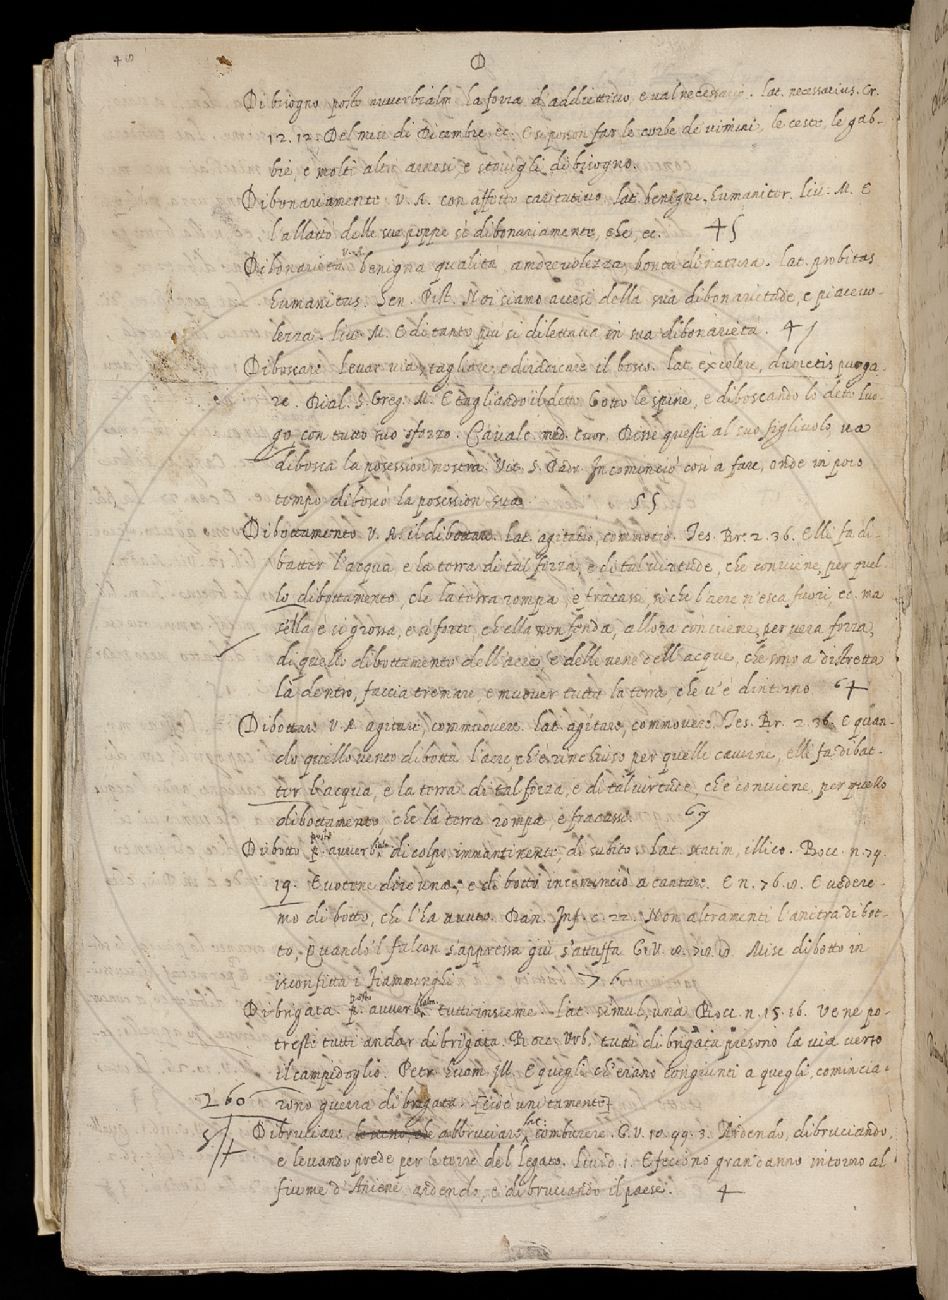 48
D
Di bisogno posto avverbialm. ha forza d'addiettivo, e val necessario. lat. necessarius. Cr.
12. 12. Del mese di Dicembre ec. E si posson far le corbe de' vimini, le ceste, le gab-
bie, e molti altri arnesi, e stovigli di bisogno.
Dibonariamente V. A. con affetto caritativo. lat. benigne, humaniter. Liv. M. E
l'allattò delle sue poppe sì dibonariamente, che, ec. 45
Dibonarietà V. A. benigna qualità, amorevolezza, bontà di natura. lat. probitas
humanitas. Sen. Pist. Noi siamo accesi della sua dibonarietade, e piacevo-
lezza. Liv. M. E di tanto più si dilettava in sua dibonarietà.
Diboscare. Levar via, tagliare, e diradicare il bosco. lat. excolere, dumetis purga-
re. Dial. S. Greg. M. E tagliando il detto Gotto le spine, e diboscando lo detto luo-
go, con tutto suo sforzo. Cavalc. med. cuor. Dene questi al suo figliuolo, va
dibosca la posession nostra. Vit. S. Padr. Incominciò così a fare, onde in poco
tempo diboscò la posession sua. 55
Dibottamento V. A. il dibottare. lat. agitatio, commotio. Tes. Br. 2. 36. Elli fa di-
batter l'acqua, e la terra di tal forza, e di tal virtude, che conviene, per quel-
lo dibottamento, che la terra rompa, e fracassi, sì che l'aere n'esca fuori, ec. ma
s'ella è sì grossa, e sì forte, ch'ella non fonda, allora conviene, per vera forza,
di quello dibottamento dell'aere, e delle vene dell'acque, che sono a distretta
là dentro, faccia tremare, e muover tutta la terra, che v'è dintorno. 64
Dibottare V. A. agitare, commuovere. lat. agitare, commovere. Tes. Br. 2. 36. E quan-
do quello vento dibotta l'aere, ch'è rinchiuso per quelle caverne, elli fa dibat-
ter l'acqua, e la terra di tal forza, e di tal virtude, che conviene, per quello
dibottamento, che la terra rompa, e fracassi. 69
Di botto posto avverbialm. di colpo, immantinente, di subito. lat. statim, illico. Bocc. n. 79.
19. E votene dire una, e di botto incominciò a cantare. E n. 76. 8. E vedere-
mo di botto, chi l'ha avuto. Dan. Inf. c. 22. Non altramenti l'anitra di bot-
to, Quando 'l falcon s'appressa giù s'attuffa. G. V. 8. 78. 8. Mise di botto in
isconfitta i Fiamminghi 76
Di brigata. posto avverbialm. tutti insieme. lat. simul, una. Bocc. n. 15. 16. Ve ne po-
treste tutti andar di brigata. Bocc. Urb. tutti di brigata presono la via verso
il campidoglio. Petr. huom. Ill. E quegli ch'erano congiunti a quegli, comincia-
rono guerra di brigata. [cioè unitamente]
260
54
Dibruciare abbruciare. lat. comburere. G. V. 10. 99. 3. Ardendo, dibruciando,
e levando prede per le terre del legato. Liv. d. 1. E feciono gran danno intorno al
fiume d'Aniene ardendo, e dibruciando il paese. 4